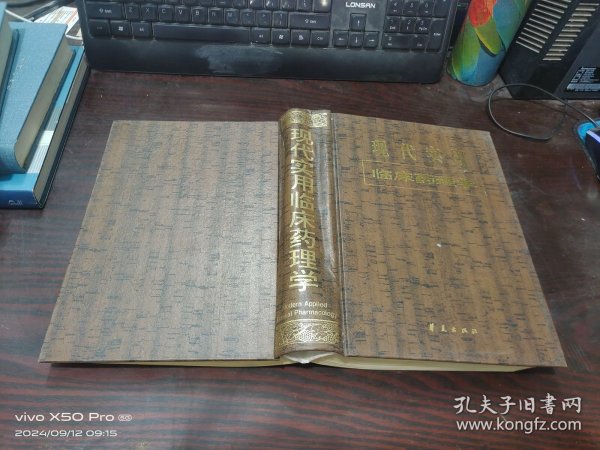 LONGSAN
现代实用临床药理学
Modern Applied
Clinical Pharmacology
现代实用
临床药理学
华夏出版社
vivo X50 Pro 5G
2024/09/12 09:15
孔夫子旧书网
www.kongfz.com